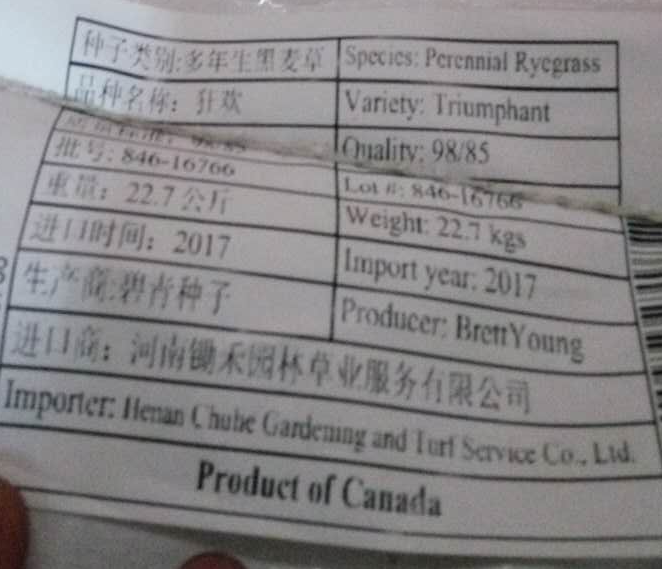 种子类别:多年生黑麦草 Species: Perennial Ryegrass
品种名称：狂欢 Variety: Triumphant
质量标准：98/85 Quality: 98/85
批号: 846-16766 Lot #: 846-16766
重量：22.7公斤 Weight: 22.7 kgs
进口时间：2017 Import year: 2017
生产商:碧青种子 Producer: BrettYoung
进口商：河南锄禾园林草业服务有限公司
Importer: Henan Chuhe Gardening and Turf Service Co., Ltd.
Product of Canada